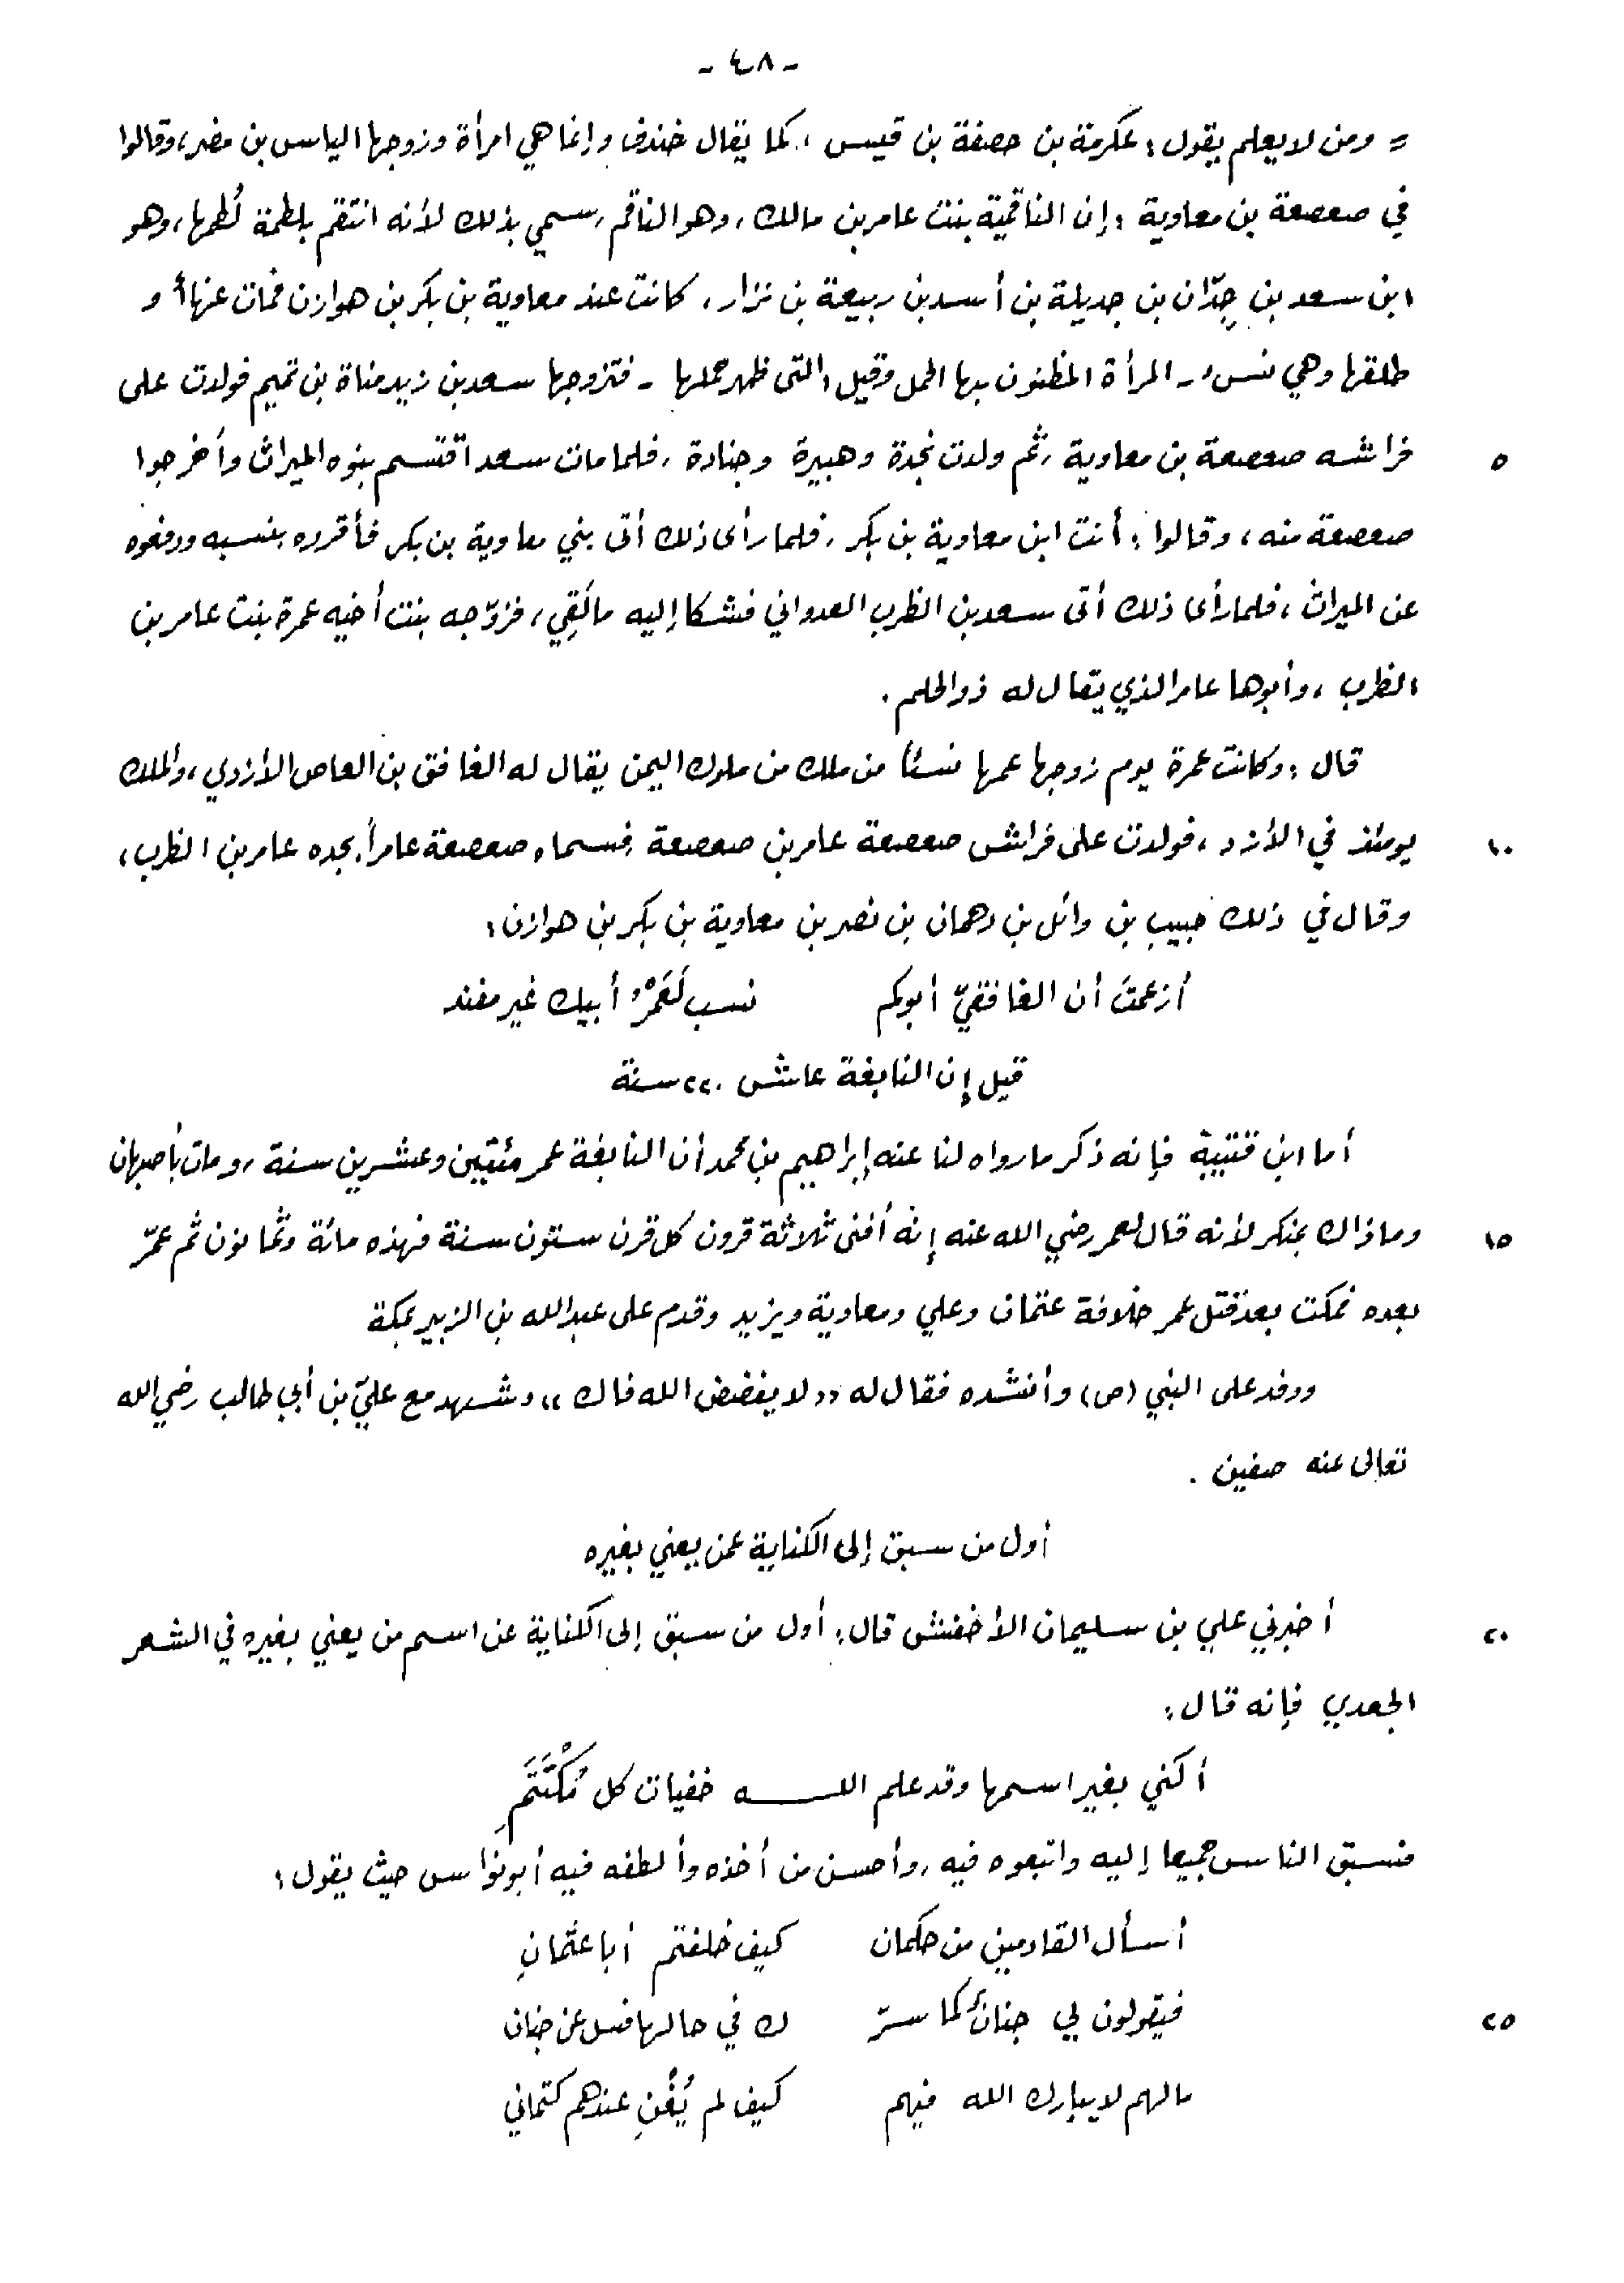 - ٤٨ -
= ومن لا يعلم يقول : عكرمة بن حصفة بن قيس ، كما يقال خندف وإنما هي امرأة وزوجها الياس بن مضر ، وقالوا
في صعصعة بن معاوية : إن الناقمية بنت عامر بن مالك ، وهو الناقم ، سمي بذلك لأنه انتقم بلطمة لُطمها ، وهو
ابن سعد بن جِدّان بن جديلة بن أسد بن ربيعة بن نزار ، كانت عند معاوية بن بكر بن هوازن فمات عنها أو
طلقها وهي نسء - المرأة المظنون بها الحمل وقيل : التي ظهر حملها - فتزوجها سعد بن زيد مناة بن تميم فولدت على
فراشه صعصعة بن معاوية ، ثم ولدت نجدة وهبيرة وجنادة ، فلما مات سعد اقتسم بنوه الميراث وأخرجوا
٥
صعصعة منه ، وقالوا : أنت ابن معاوية بن بكر ، فلما رأى ذلك أتى بني معاوية بن بكر فأقروه بنسبه ودفعوه
عن الميراث ، فلما رأى ذلك أتى سعد بن الظرب العدواني فشكا إليه ما لَقِي ، فزوّجه بنت أخيه عمرة بنت عامر بن
الظرب ، وأبوها عامر الذي يقال له ذو الحلم .
قال : وكانت عمرة يوم زوجها عمها نسئاً من ملك من ملوك اليمن يقال له الغافق بن العاص الأزدي ، والملك
يومئذ في الأزد ، فولدت على فراش صعصعة عامر بن صعصعة فسماه صعصعة عامراً بجده عامر بن الظرب ،
١٠
وقال في ذلك حبيب بن وائل بن دهمان بن نصر بن معاوية بن بكر بن هوازن :
أزعمتَ أن الغافقيّ أبوكم نسب لَعَمْرُ أبيك غير مفند
قيل إن النابغة عاش ٢٢٠ سنة
أما ابن قتيبة فإنه ذكر ما رواه لنا عنه إبراهيم بن محمد أن النابغة عمر مئتين وعشرين سنة ، ومات بأصبهان
وما ذاك بمنكر لأنه قال لعمر رضي الله عنه إنه أفنى ثلاثة قرون كل قرن ستون سنة فهذه مائة وثمانون ثم عمّر
١٥
بعده فمكث بعد قتل عمر خلافة عثمان وعلي ومعاوية ويزيد وقدم على عبدالله بن الزبير بمكة
ووفد على النبي (ص) وأنشده فقال له « لا يفضض الله فاك » وشهد مع عليّ بن أبي طالب رضي الله
تعالى عنه صفين .
أول من سبق إلى الكناية عمن يعني بغيره
أخبرني علي بن سليمان الأخفش قال : أول من سبق إلى الكناية عن اسم من يعني بغيره في الشعر
٢٠
الجعدي فإنه قال :
أكني بغير اسمها وقد علم اللـــــه خفيات كل مُكْتَتَمِ
فسبق الناس جميعا إليه واتبعوه فيه ، وأحسن من أخذه وألطفه فيه أبو نواس حيث يقول :
أسأل القادمين من حكمان كيف خلفتم أبا عثمانِ
فيقولون لي جنانُ كما سرّ ك في حالها فسل عن جنان
٢٥
مالهم لا يبارك الله فيهم كيف لم يُغْنِ عندهم كتماني